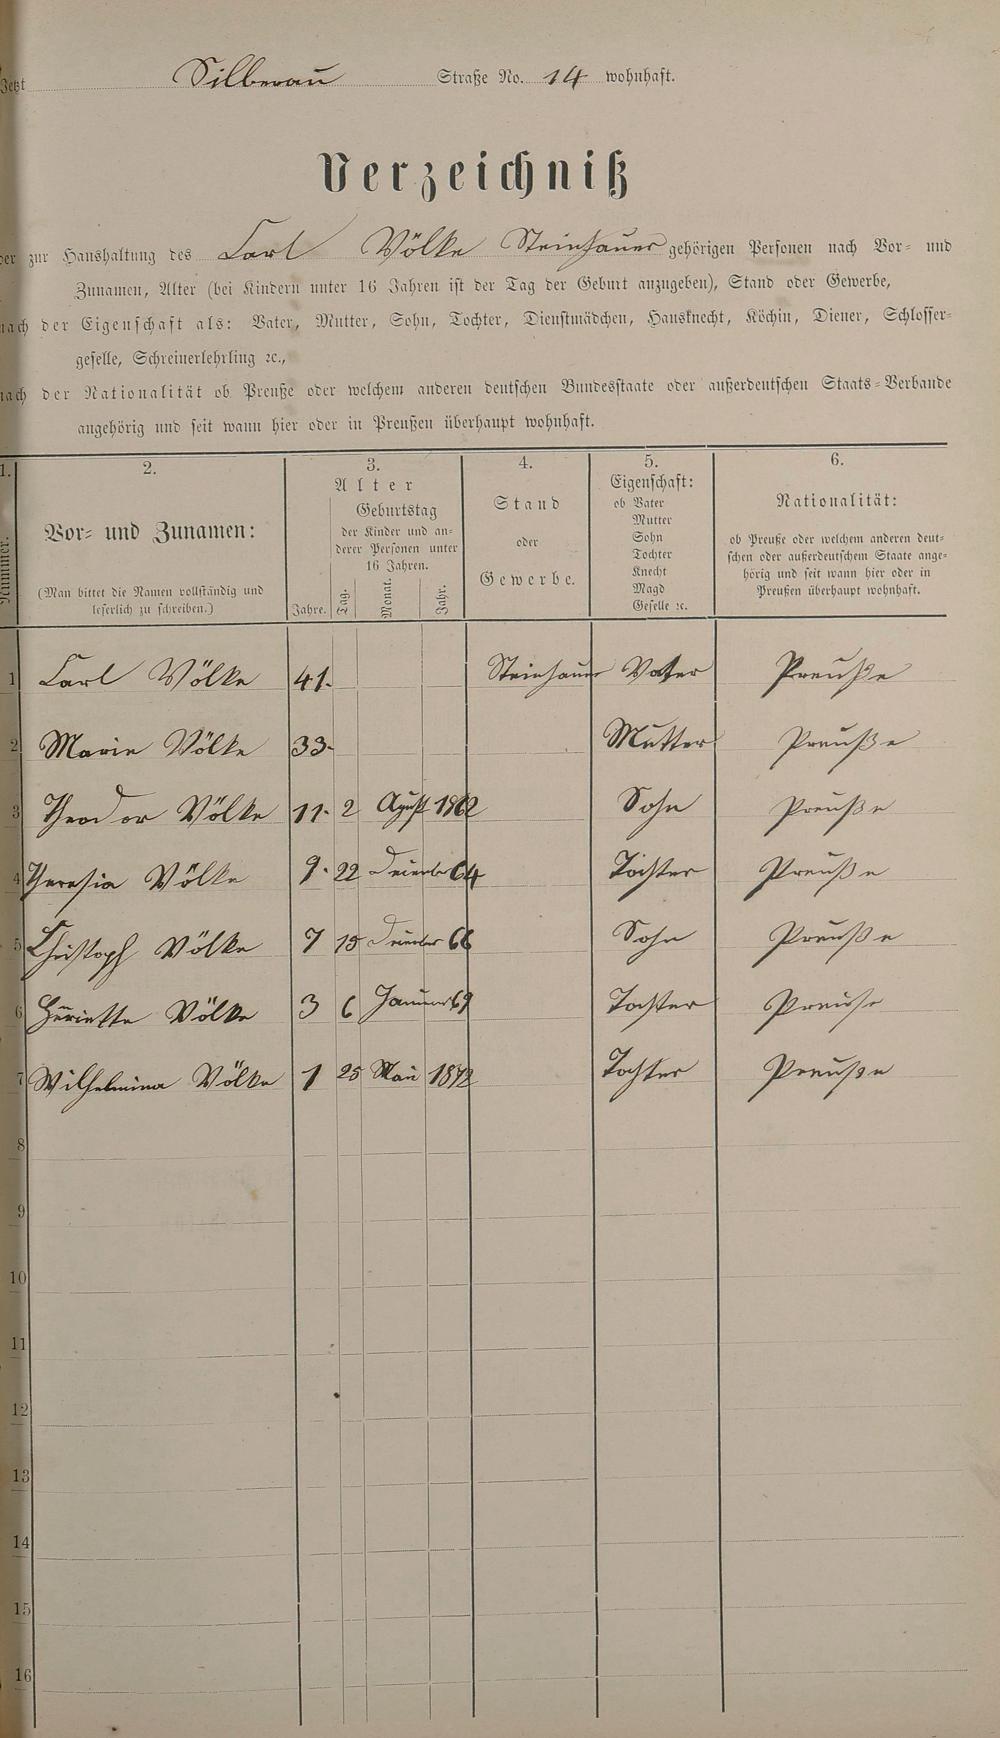 Jetzt Silberau Straße No. 14 wohnhaft.
Verzeichniß
der zur Haushaltung des Carl Völke Steinhauer gehörigen Personen nach Vor- und
Zunamen, Alter (bei Kindern unter 16 Jahren ist der Tag der Geburt anzugeben), Stand oder Gewerbe,
nach der Eigenschaft als: Vater, Mutter, Sohn, Tochter, Dienstmädchen, Hausknecht, Köchin, Diener, Schlosser-
geselle, Schreinerlehrling ꝛc.,
nach der Nationalität ob Preuße oder welchem anderen deutschen Bundesstaate oder außerdeutschen Staats-Verbande
angehörig und seit wann hier oder in Preußen überhaupt wohnhaft.
1. 2. 3. 4. 5. 6.
Nummer.
Vor- und Zunamen:
(Man bittet die Namen vollständig und
leserlich zu schreiben.)
Alter
Jahre.
Geburtstag
der Kinder und an-
derer Personen unter
16 Jahren.
Tag. Monat. Jahr.
Stand
oder
Gewerbe.
Eigenschaft:
ob Vater
Mutter
Sohn
Tochter
Knecht
Magd
Geselle ꝛc.
Nationalität:
ob Preuße oder welchem anderen deut-
schen oder außerdeutschem Staate ange-
hörig und seit wann hier oder in
Preußen überhaupt wohnhaft.
1 Carl Völke 41. Steinhauer Vater Preuße
2 Marie Völke 33. Mutter Preuße
3 Theodor Völke 11. 2 1862 Sohn Preuße
4 Theresia Völke 9. 22 64 Tochter Preuße
5 Christoph Völke 7 15 66 Sohn Preuße
6 Henriette Völke 3 6 Januar 69 Tochter Preuße
7 Wilhelmina Völke 1 25 Mai 1872 Tochter Preuße
8
9
10
11
12
13
14
15
16